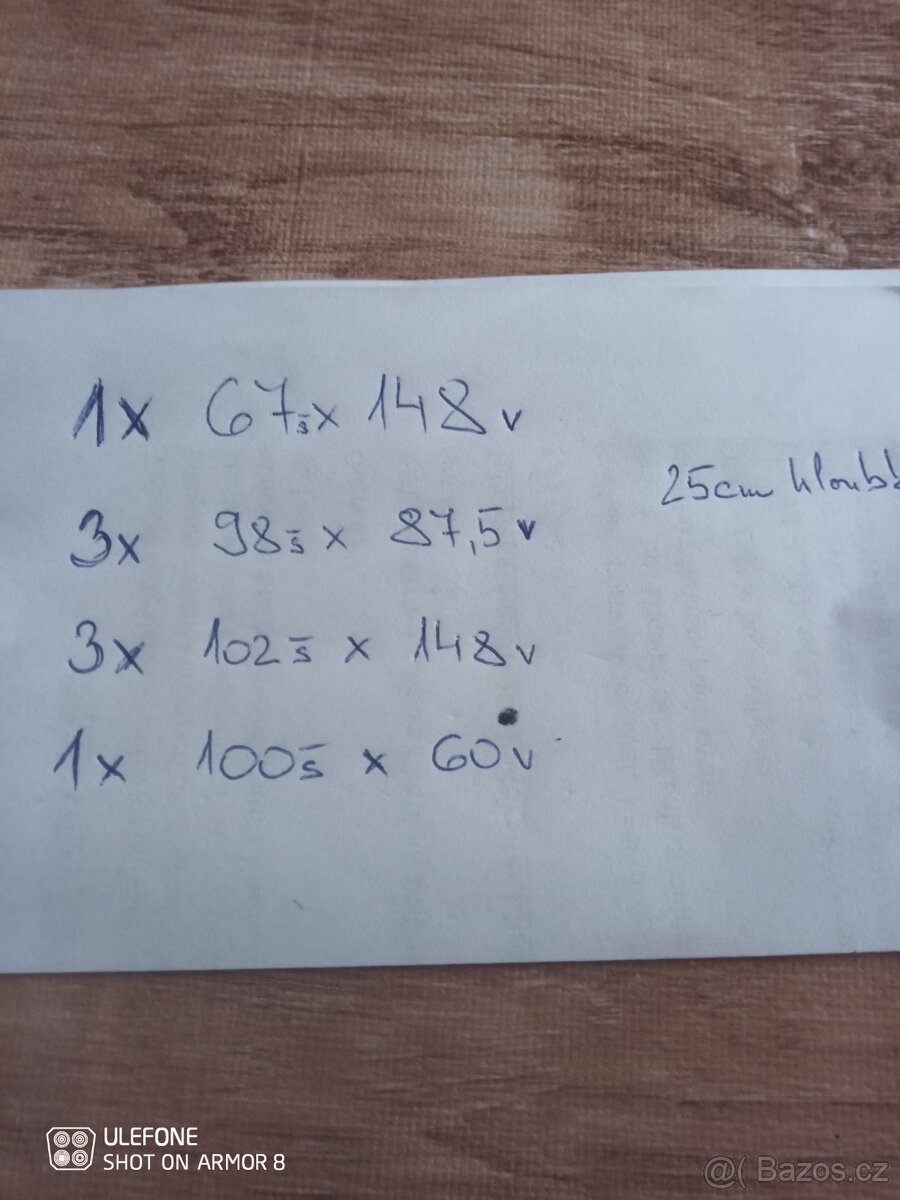 1x 67š x 148v
25cm hloub
3x 98š x 87,5v
3x 102š x 148v
1x 100š x 60v
ULEFONE
SHOT ON ARMOR 8
@( Bazos.cz